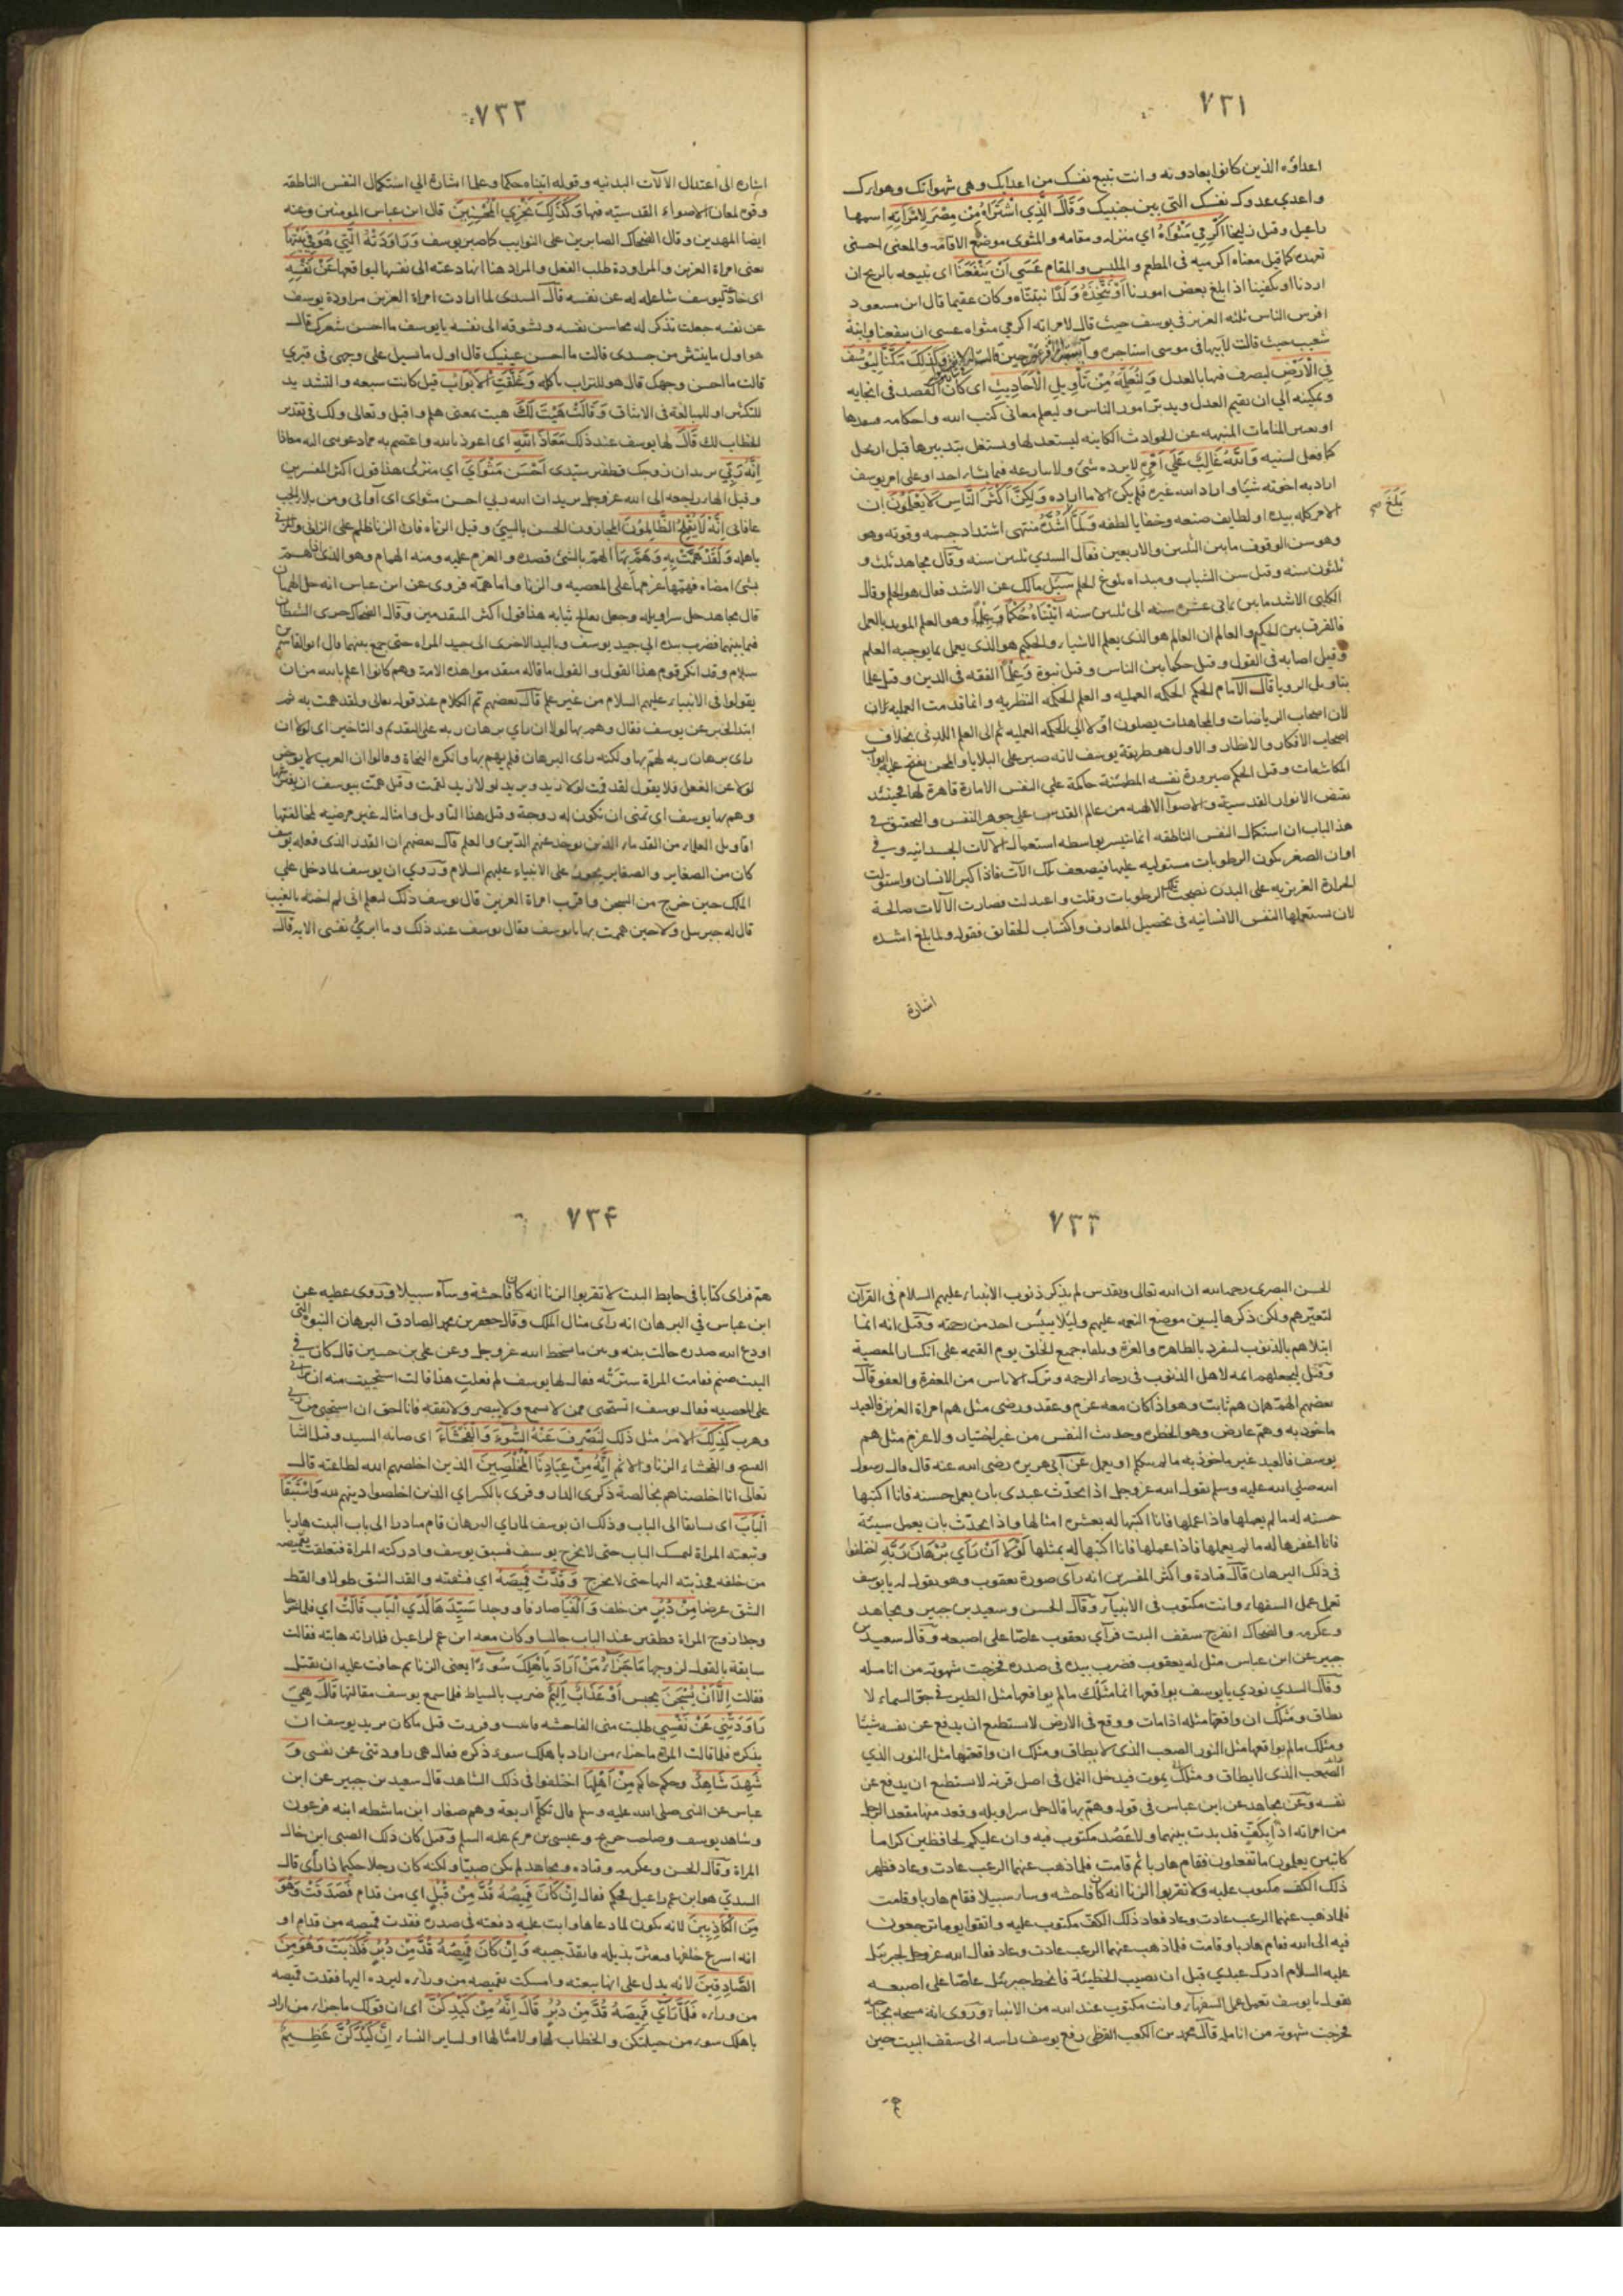 ٧٣١
اعداؤه الذين كانوا يعادونه وانت تبيع نفسك من اعدائك وهي شهواتك وهواك
واعدي عدوك نفسك التي بين جنبيك وَقَالَ الَّذِي اشْتَرَاهُ مِنْ مِصْرَ لِامْرَاَتِهِ اسمها
راعيل وقيل زليخا اَكْرِمِي مَثْوَاهُ اي منزله ومقامه والمثوى موضع الاقامه والمعنى احسني
تعهده كما قيل معناه اكرميه في المطعم والملبس والمقام عَسَي اَنْ يَنْفَعَنَا اي نبيعه بالربح ان
اردنا او يكفينا اذا ابلغ بعض امورنا اَوْ نَتَّخِذَهُ وَلَدًا نتبنّاه وكان عقيما قال ابن مسعود
افرس الناس ثلثه العزيز في يوسف حيث قال لامراته اكرمي مثواه عسى ان ينفعنا وابنة
شعيب حيث قالت لأبيها في موسى استاجره وآسية امراة فرعون حين قالت وَكَذَلِكَ مَكَّنَّا لِيُوسُفَ
فِي الْاَرْضِ ليصرف فيها بالعدل وَلِنُعَلِّمَهُ مِنْ تَأْوِيلِ الْاَحَادِيثِ اي كان القصد في انجايه
وتمكينه الي ان يقيم العدل ويدبر امور الناس وليعلم معاني كتب الله واحكامه
او تعبير المنامات المنبهه عن الحوادث الكاينه ليستعد لها ويستغل بتدبيرها قبل ان تحل
كما فعل لسنيه وَاللَّهُ غَالِبٌ عَلَي اَمْرِهِ لا يرده شئ ولا ينازعه فيما يشاء احد او على امر يوسف
اراد به اخوته شيًا واراد الله غيره فلم يكن الا ما اراده وَلَكِنَّ اَكْثَرَ النَّاسِ لَا يَعْلَمُونَ ان
بَلَغَ
الامر كله بيده او لطايف صنعه وخفايا لطفه وَلَمَّا اَشُدَّهُ منتهى اشتداد جسمه وقوته وهو
وهو سن الوقوف ما بين الثلثين والاربعين فقال السدي ثلثين سنه وقال مجاهد ثلث و
ثلثون سنه وقيل سن الشباب ومبداه بلوغ الحلم سيّل مالك عن الاشد فقال هو الحلم وقال
الكلبي الاشد ما بين ثماني عشره سنه الى ثلثين سنه آتَيْنَاهُ حُكْمًا وَعِلْمًا وهو العلم المويد بالعمل
فالفرق بين الحكيم والعالم ان العالم هو الذي يعلم الاشياء والحكيم هو الذي يعمل بما يوجبه العلم
وقيل اصابه في القول وقيل حكما بين الناس وقيل نبوة وَعِلْمًا الفقه في الدين وقيل علما
بتاويل الرويا قال الامام الحكم الحكمه العمليه والعلم الحكمه النظريه وانما قدمت العمليه
لان اصحاب الرياضات والمجاهدات يصلون اولا الي الحكمه العمليه ثم الى العلم اللدني بخلاف
اصحاب الأفكار والانظار والاول هو طريقة يوسف لانه صبر على البلايا والمحن ففتح عليه ابواب
المكاشفات وقيل الحكم صيرورة نفسه المطمئنة حاكمة علي النفس الامارة قاهرة لها فحينئذ
تفيض الانوار القدسية والاضوآ الالهيه من عالم القدس علي جوهر النفس والتحقيق في
هذا الباب ان استكمال النفس الناطقه انما يتيسر بواسطه استعمال الآلات الجسدانيه وفي
اوان الصغر يكون الرطوبات مستوليه عليها فيضعف تلك الآلات فاذا كبر الانسان واستولت
الحرارة الغريزيه على البدن نضجت تلك الرطوبات وقلت واعتدلت فصارت الآلات صالحة
لان يستعملها النفس الانسانيه في تحصيل المعارف واكتساب الحقايق فقوله ولما بلغ اشده
اشارة
٧٣٢
اشاره الى اعتدال الآلات البدنيه وقوله آتيناه حكما وعلما اشارة الي استكمال النفس الناطقه
وقوه لمعان الاضواء القدسيه فيها وَكَذَلِكَ نَجْزِي الْمُحْسِنِينَ قال ابن عباس المومنين وعنه
ايضا المهتدين وقال الضحاك الصابرين على النوايب كما صبر يوسف وَرَاوَدَتْهُ الَّتِي هُوَ فِي بَيْتِهَا
يعني امراة العزيز والمراودة طلب الفعل والمراد هنا انها دعته الى نفسها ليواقعها عَنْ نَفْسِهِ
عن نفسه جعلت تذكر له محاسن نفسه وتشوقه الى نفسه يا يوسف ما احسن شعرك قال
هو اول ما ينتثر من جسدي قالت ما احسن عينيك قال اول ما تسيل على وجهي في قبري
قالت ما احسن وجهك قال هو للتراب ياكله وَغَلَّقَتِ الْاَبْوَابَ قيل كانت سبعه والتشديد
للتكثير او للمبالغة في الايثاق وَقَالَتْ هَيْتَ لَكَ هيت بمعنى هلم واقبل وتعالى ولك في تقدير
الخطاب لك قَالَ لها يوسف عند ذلك مَعَاذَ اللَّهِ اي اعوذ بالله واعتصم به مما دعوتني اليه معاذا
اِنَّهُ رَبِّي يريد ان زوجك قطفير سيّدى اَحْسَنَ مَثْوَايَ اي منزلي هذا قول اكثر المفسرين
وقيل الهاء راجعه الى الله عز وجل يريد ان الله ربي احسن مثواى اى آواني ومن بلاء الجب
عافاني اِنَّهُ لَا يُفْلِحُ الظَّالِمُونَ المجازون الحسن بالسيئ وقيل الزناه فان الزنا ظلم على الزاني
باهله وَلَقَدْ هَمَّتْ بِهِ وَهَمَّ بِهَا الهمّ بالشئ قصده والعزم عليه ومنه الهمام وهو الذي اذا همّ
بشئ امضاه فهمّها عزمها على المعصيه والزنا واما همّه فروى عن ابن عباس انه حل الهميان
قال مجاهد حل سراويله وجعل يعالج ثيابه هذا قول اكثر المتقدمين وقال الضحاك جرى الشيطان
فيما بينهما فضرب بيده الي جيد يوسف وباليد الاخرى الى جيد المراه حتى جمع بينهما قال ابو القاسم
سلام وقد انكر قوم هذا القول والقول ما قاله متقدموا هذه الامة وهم كانوا اعلم بالله من ان
يقولوا في الانبياء عليهم السلام من غير علم قال بعضهم تم الكلام عند قوله تعالى ولقد همت به ثم
ابتدا الخبر عن يوسف فقال وهم بها لولا ان راي برهان ربه على التقديم والتاخير اى لولا ان
راى برهان ربه لهمّ بها ولكنه راى البرهان فلم يهم بها وانكره النحاة وقالوا ان العرب لا يوخر
لولا عن الفعل فلا يقول لقد قمت لولا زيد ويريد لولا زيد لقمت وقيل همّت بيوسف ان يفترشها
وهم بها يوسف اى تمنى ان تكون له زوجة وقيل هذا التاويل وامثاله غير مرضيه لمخالفتها
اقاويل العلماء من القدماء الذين يوخذ عنهم الدّين والعلم قال بعضهم ان القدر الذى فعله يوسف
كان من الصغاير والصغاير يجوز على الانبياء عليهم السلام وروي ان يوسف لما دخل علي
الملك حين خرج من السجن واقرّت امراة العزيز قال يوسف ذلك ليعلم اني لم اخنه بالغيب
قال له جبريل ولا حين هممت بها يا يوسف فقال يوسف عند ذلك وما ابرئ نفسي الايه قال
٧٣٣
الحسن البصري رحمه الله ان الله تعالى وتقدس لم يذكر ذنوب الانبياء عليهم السلام في القرآن
لتعيّرهم ولكن ذكرها ليبين موضع النعمه عليهم وليلا ييئس احد من رحمته وقيل انه انما
ابتلاهم بالذنوب ليتفرد بالطاهره والعزة ويلقاه جميع الخلق يوم القيمه على انكسار المعصية
وقيل ليجعلهم ائمه لاهل الذنوب في رجاء الرحمه وترك الاياس من المغفرة والعفو قال
بعضهم الهمّ همان همّ ثابت وهو اذا كان معه عزم وعقد ورضى مثل هم امراة العزيز فالعبد
ماخوذ به وهمّ عارض وهو الخطره وحديث النفس من غير اختيار ولا عزم مثل هم
يوسف فالعبد غير ماخوذ به ما لم يتكلم او يعمل عن ابي هريره رضى الله عنه قال قال رسول
الله صلي الله عليه وسلم يقول الله عز وجل اذا تحدّث عبدى بان يعمل حسنه فانا اكتبها
حسنه له ما لم يعملها فاذا عملها فانا اكتبها له بعشره امثالها واذا تحدّث بان يعمل سيئة
فانا اغفرها له ما لم يعملها فاذا عملها فانا اكتبها له بمثلها لَوْلَا اَنْ رَأَي بُرْهَانَ رَبِّهِ اختلفوا
في ذلك البرهان قال قتادة واكثر المفسرين انه رآى صورة يعقوب وهو يقول له يا يوسف
تعمل عمل السفهاء وانت مكتوب في الانبيآء وقال الحسن وسعيد بن جبير ومجاهد
وعكرمه والضحاك انفرج سقف البيت فرآي يعقوب عاضّا على اصبعه وقال سعيد بن
جبير عن ابن عباس مثل له يعقوب فضرب بيده في صدره فخرجت شهوته من انامله
وقال السدي نودي يا يوسف تواقعها انما مَثَلُك ما لم تواقعها مثل الطير في جو السماء لا
يطاق ومَثَلُك ان واقعتها مثله اذا مات ووقع في الارض لا يستطيع ان يدفع عن نفسه شيًا
ومثلك ما لم تواقعها مثل الثور الصعب الذى لا يطاق ومثلك ان واقعتها مثل الثور الذي
نفسه وعن مجاهد عن ابن عباس في قوله وهمّ بها قال حل سراويله وقعد منها مقعد الرجل
من امراته اذ بكفّ قد بدت بينهما ولا عضد مكتوب فيه وان عليكم لحافظين كراما
كاتبين يعلمون ما تفعلون فقام هاربا ثم قامت فلما ذهب عنهما الرعب عادت وعاد فظهر
ذلك الكف مكتوب عليه ولا تقربوا الزنا انه كان فاحشه وساء سبيلا فقام هاربا وقامت
فلما ذهب عنهما الرعب عادت وعاد فعاد ذلك الكف مكتوب عليه واتقوا يوما ترجعون
فيه الى الله فقام هاربا وقامت فلما ذهب عنهما الرعب عادت وعاد فقال الله عز وجل لجبرئيل
عليه السلام ادرك عبدي قبل ان يصيب الخطيئة فانحط جبرئيل عاضّا على اصبعه
يقول يا يوسف تعمل عمل السفهاء وانت مكتوب عند الله من الانبياء وروى انه مسحه بجناحه
فخرجت شهوته من انامله قال محمد بن الكعب القرظي رفع يوسف راسه الى سقف البيت حين
٧٣٤
همّ فراى كتابا في حايط البيت لا تقربوا الزنا انه كان فاحشة وسآء سبيلا وروى عطيه عن
ابن عباس في البرهان انه رآى مثال الملك وقال جعفر بن محمد الصادق البرهان النبوه التي
اودع الله صدره حالت بينه وبين ما يسخط الله عز وجل وعن علي بن حسين قال كان في
البيت صنم فقامت المراة سترته فقال لها يوسف لم فعلت هذا قالت استحييت منه ان يراني
على المعصيه فقال يوسف اتستحي ممن لا يسمع ولا يبصر ولا يفقه فانا الحق ان استحي من ربي
وهرب كَذَلِكَ الامر مثل ذلك لِنَصْرِفَ عَنْهُ السُّوءَ وَالْفَحْشَاءَ اى خيانه السيد وقيل الثنا
القبيح والفحشاء الزنا والاثم اِنَّهُ مِنْ عِبَادِنَا الْمُخْلَصِينَ الذين اخلصهم الله لطاعته قال
تعالى انا اخلصناهم بخالصة ذكرى الدار وقرى بالكسر اي الذين اخلصوا دينهم لله وَاسْتَبَقَا
الْبَابَ اى تسابقا الى الباب وذلك ان يوسف لما راي البرهان قام مبادرا الى باب البيت هاربا
وتبعته المراة لتمسك الباب حتى لا يخرج يوسف فسبق يوسف وادركته المراة فتعلقت بقميصه
من خلفه فجذبته اليها حتى لا يخرج وَقَدَّتْ قَمِيصَهُ اي فشقته والقد الشق طولا والقط
الشق عرضا مِنْ دُبُرٍ من خلف وَاَلْفَيَا صادفا ووجدا سَيِّدَهَا لَدَي الْبَابِ قَالَتْ اي فلما خرجا
وجدا زوج المراة قطفير عند الباب جالسا وكان معه ابن عم لراعيل فلما راته هابته فقالت
سابقة بالقول لزوجها مَا جَزَاءُ مَنْ اَرَادَ بِاَهْلِكَ سُوءًا يعنى الزنا ثم خافت عليه ان يقتل
فقالت اِلَّا اَنْ يُسْجَنَ يحبس اَوْ عَذَابٌ اَلِيمٌ ضرب بالسياط فلما سمع يوسف مقالتها قَالَ هِيَ
رَاوَدَتْنِي عَنْ نَفْسِي طلبت مني الفاحشه فابيت وفررت قيل ما كان يريد يوسف ان
يذكره فلما قالت المراة ما جزاء من اراد باهلك سوء ذكره فقال هي راودتني عن نفسي وَ
شَهِدَ شَاهِدٌ وحكم حاكم مِنْ اَهْلِهَا اختلفوا في ذلك الشاهد قال سعيد بن جبير عن ابن
عباس عن النبي صلى الله عليه وسلم قال تكلم اربعة وهم صغار ابن ماشطه ابنه فرعون
وشاهد يوسف وصاحب جريج وعيسى بن مريم عليه السلم وقيل كان ذلك الصبي ابن خال
المراة وقال الحسن وعكرمه وقتاده ومجاهد لم يكن صبيّا ولكنه كان رجلا حكيما ذا رأي قال
السديّ هو ابن عم راعيل فحكم فقال اِنْ كَانَ قَمِيصُهُ قُدَّ مِنْ قُبُلٍ اي من قدام فَصَدَقَتْ وَهُوَ
مِنَ الْكَاذِبِينَ لانه يكون لما دعاها وابت عليه دفعته في صدره فقدت قميصه من قدام او
انه اسرع خلفها فيعثر بذيله فانقدّ جيبه وَاِنْ كَانَ قَمِيصُهُ قُدَّ مِنْ دُبُرٍ فَكَذَبَتْ وَهُوَ مِنَ
الصَّادِقِينَ لانه يدل على انها تبعته وامسكت بقميصه من ورائه ليرده اليها فقدت قميصه
من ورائه فَلَمَّا رَآَي قَمِيصَهُ قُدَّ مِنْ دُبُرٍ قَالَ اِنَّهُ مِنْ كَيْدِكُنَّ اى ان قولك ما جزاء من اراد
باهلك سوء من حيلتكن والخطاب لها ولامثالها او لساير النساء اِنَّ كَيْدَكُنَّ عَظِيمٌ